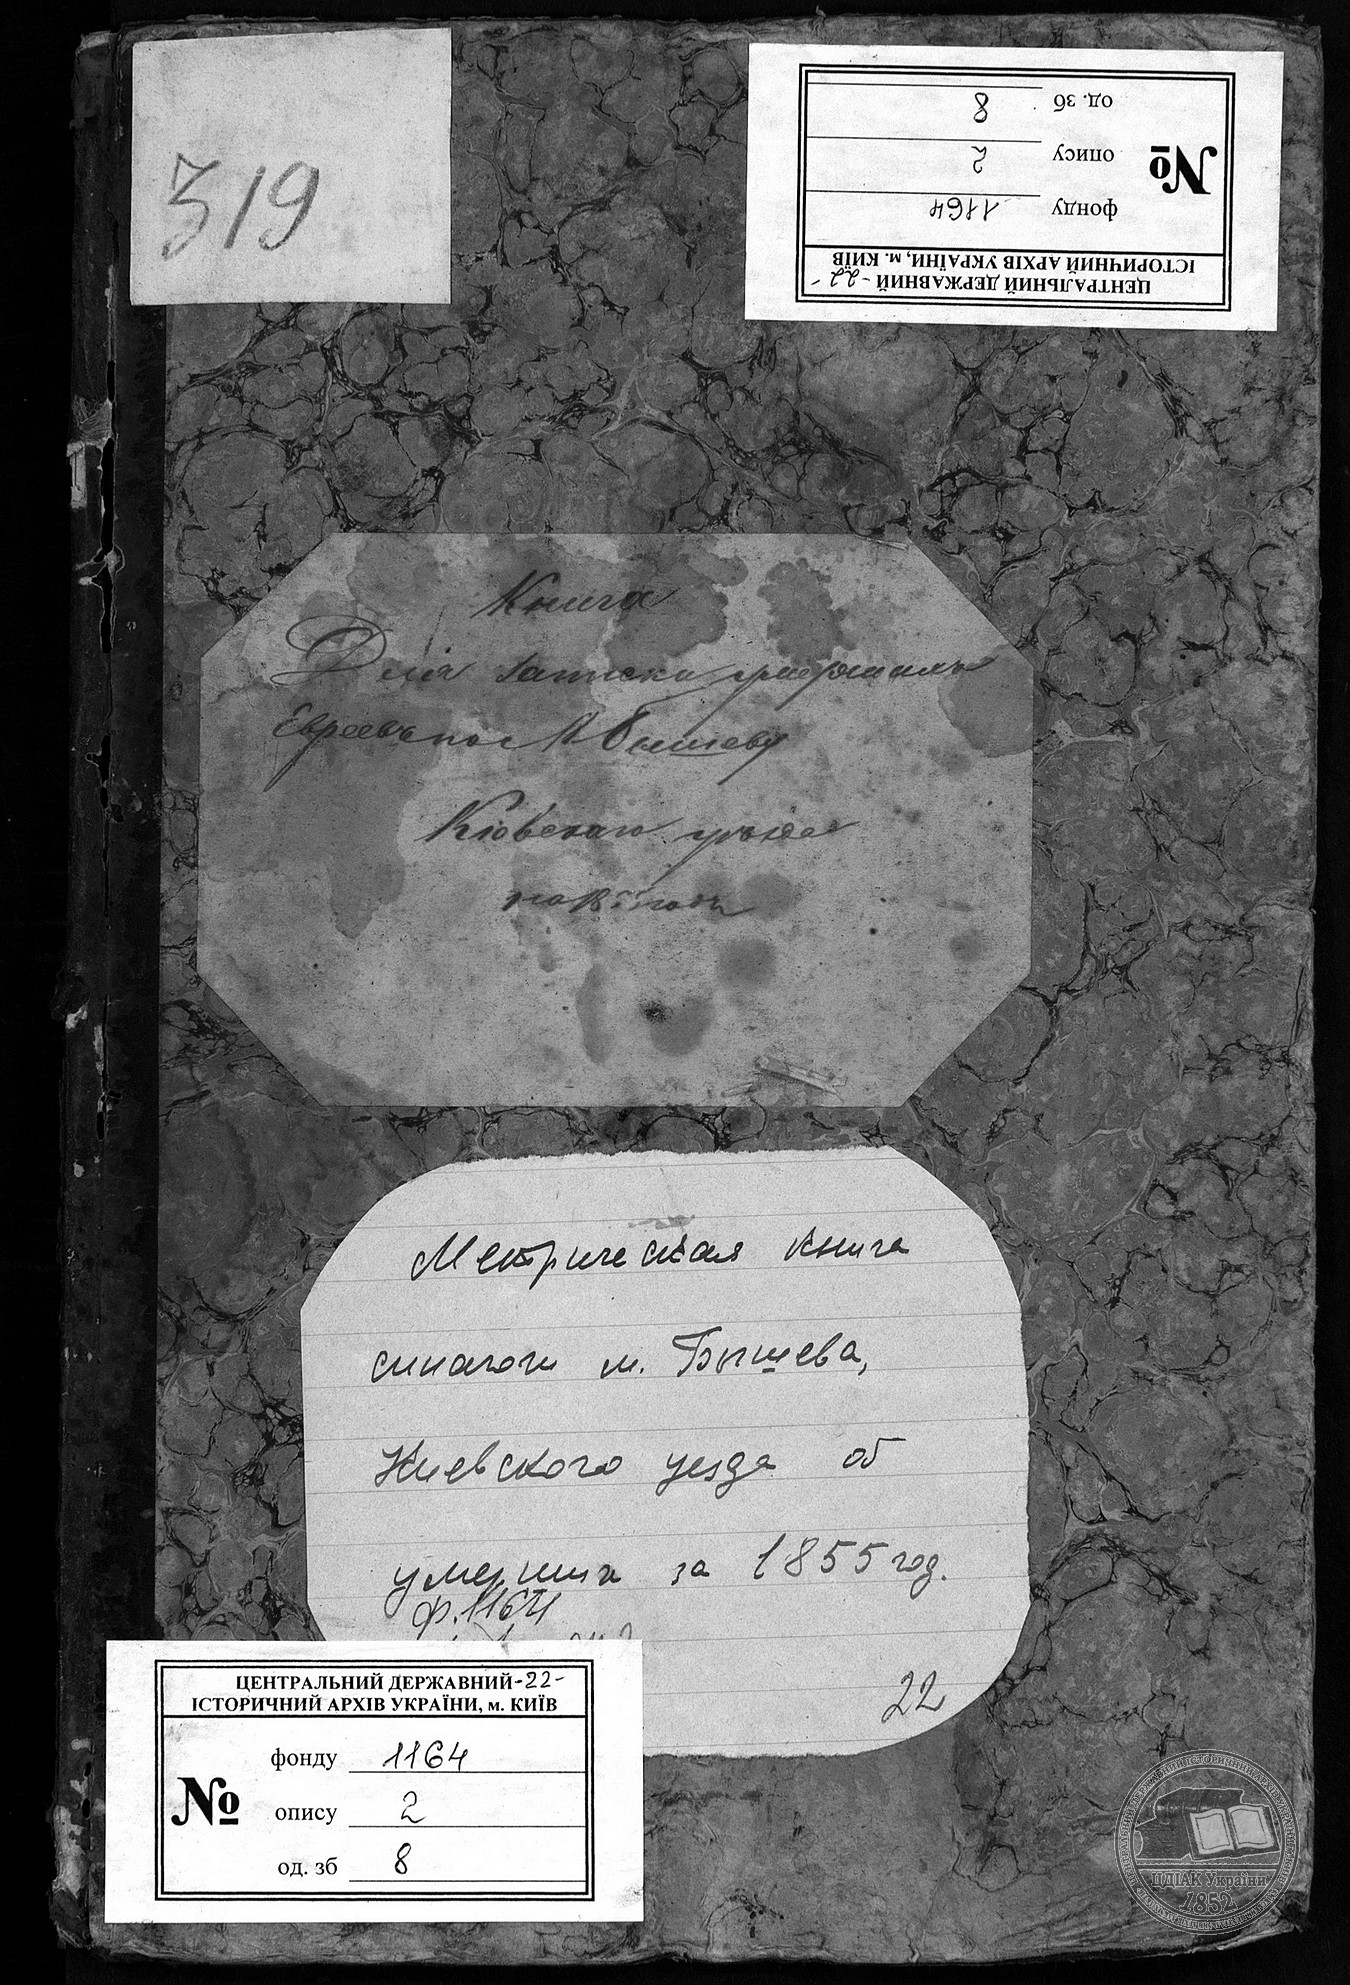 319
ЦЕНТРАЛЬНИЙ ДЕРЖАВНИЙ -22-
ІСТОРИЧНИЙ АРХІВ УКРАЇНИ, м. КИЇВ
№
фонду 1164
опису 2
од. зб 8
Книга
Для записки умершихъ
Евреевъ по М Бышеву
Кіевскаго уѣзда
на годъ
Метрическая книга
синагоги м. Бышева,
Киевского уезда об
умерших за 1855 год.
ф. 1164
22
ЦЕНТРАЛЬНИЙ ДЕРЖАВНИЙ -22-
ІСТОРИЧНИЙ АРХІВ УКРАЇНИ, м. КИЇВ
№
фонду 1164
опису 2
од. зб 8
ЦДІАК України
1852